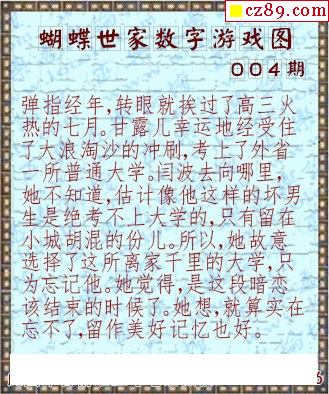 cz89.com
蝴蝶世家数字游戏图
004期
弹指经年,转眼就挨过了高三火
热的七月。甘露儿幸运地经受住
了大浪淘沙的冲刷,考上了外省
一所普通大学。闫波去向哪里,
她不知道,估计像他这样的坏男
生是绝考不上大学的,只有留在
小城胡混的份儿。所以,她故意
选择了这所离家千里的大学,只
为忘记他。她觉得,是这段暗恋
该结束的时候了。她想,就算实在
忘不了,留作美好记忆也好。